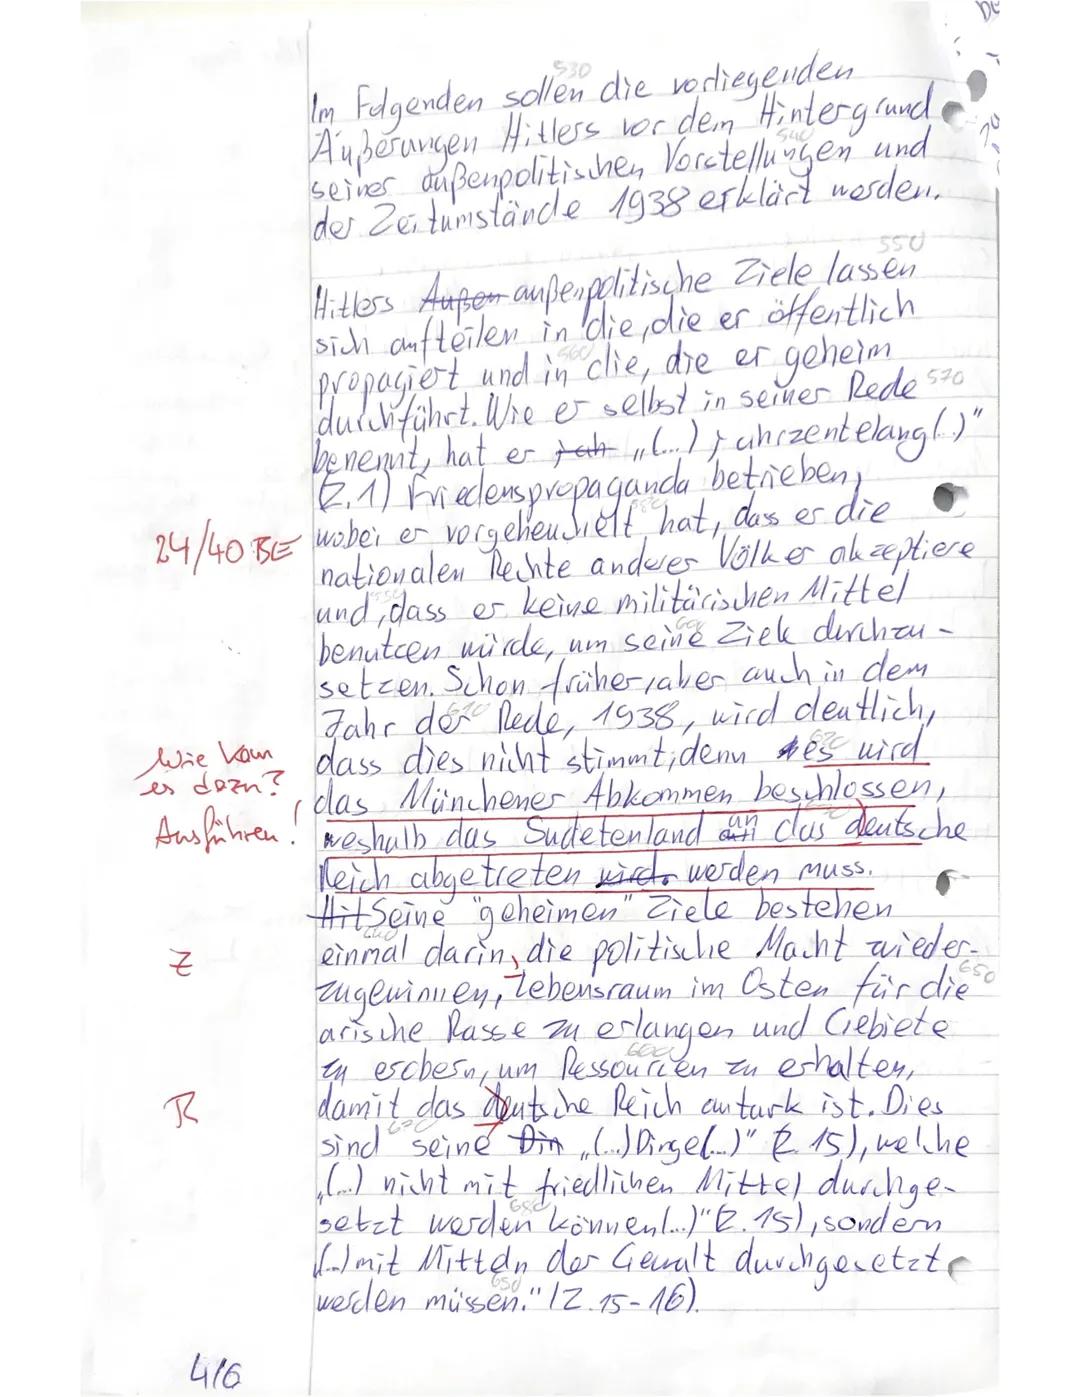 530
Im Folgenden sollen die vorliegenden
Äußerungen Hitlers vor dem Hintergrund
540
seiner außenpolitischen Vorstellungen und
der Zeitumstände 1938 erklärt werden.
550
Hitlers Außen außenpolitische Ziele lassen
sich aufteilen in die, die er öffentlich
560
propagiert und in die, die er geheim
durchführt. Wie er selbst in seiner Rede 570
benennt, hat er jah „(...) jahrzentelang(..)"
(Z.1) Friedenspropaganda betrieben,
580
24/40 BE wobei er vorgeheuchelt hat, dass er die
nationalen Rechte anderer Völker akzeptiere
590
und, dass er keine militärischen Mittel
600
benutzen würde, um seine Ziele durchzu-
setzen. Schon früher, aber auch in dem
610
Jahr der Rede, 1938, wird deutlich,
620
Wie kam es dazu? Ausführen!
dass dies nicht stimmt, denn es wird
das Münchener Abkommen beschlossen,
weshalb das Sudetenland an das deutsche
Reich abgetreten wird. werden muss.
Hit Seine "geheimen" Ziele bestehen
640
Z einmal darin, die politische Macht wieder-
650
zugewinnen, Lebensraum im Osten für die
arische Rasse zu erlangen und Gebiete
660
zu erobern, um Ressourcen zu erhalten,
R damit das deutsche Reich autark ist. Dies
670
sind seine Din „(...) Dinge(...)" (Z. 15), welche
„(...) nicht mit friedlichen Mittel durchge-
680
setzt werden können(...)" (Z.15), sondern
„(..) mit Mitteln der Gewalt durchgesetzt
690
werden müssen." (Z.15-16).
4/6